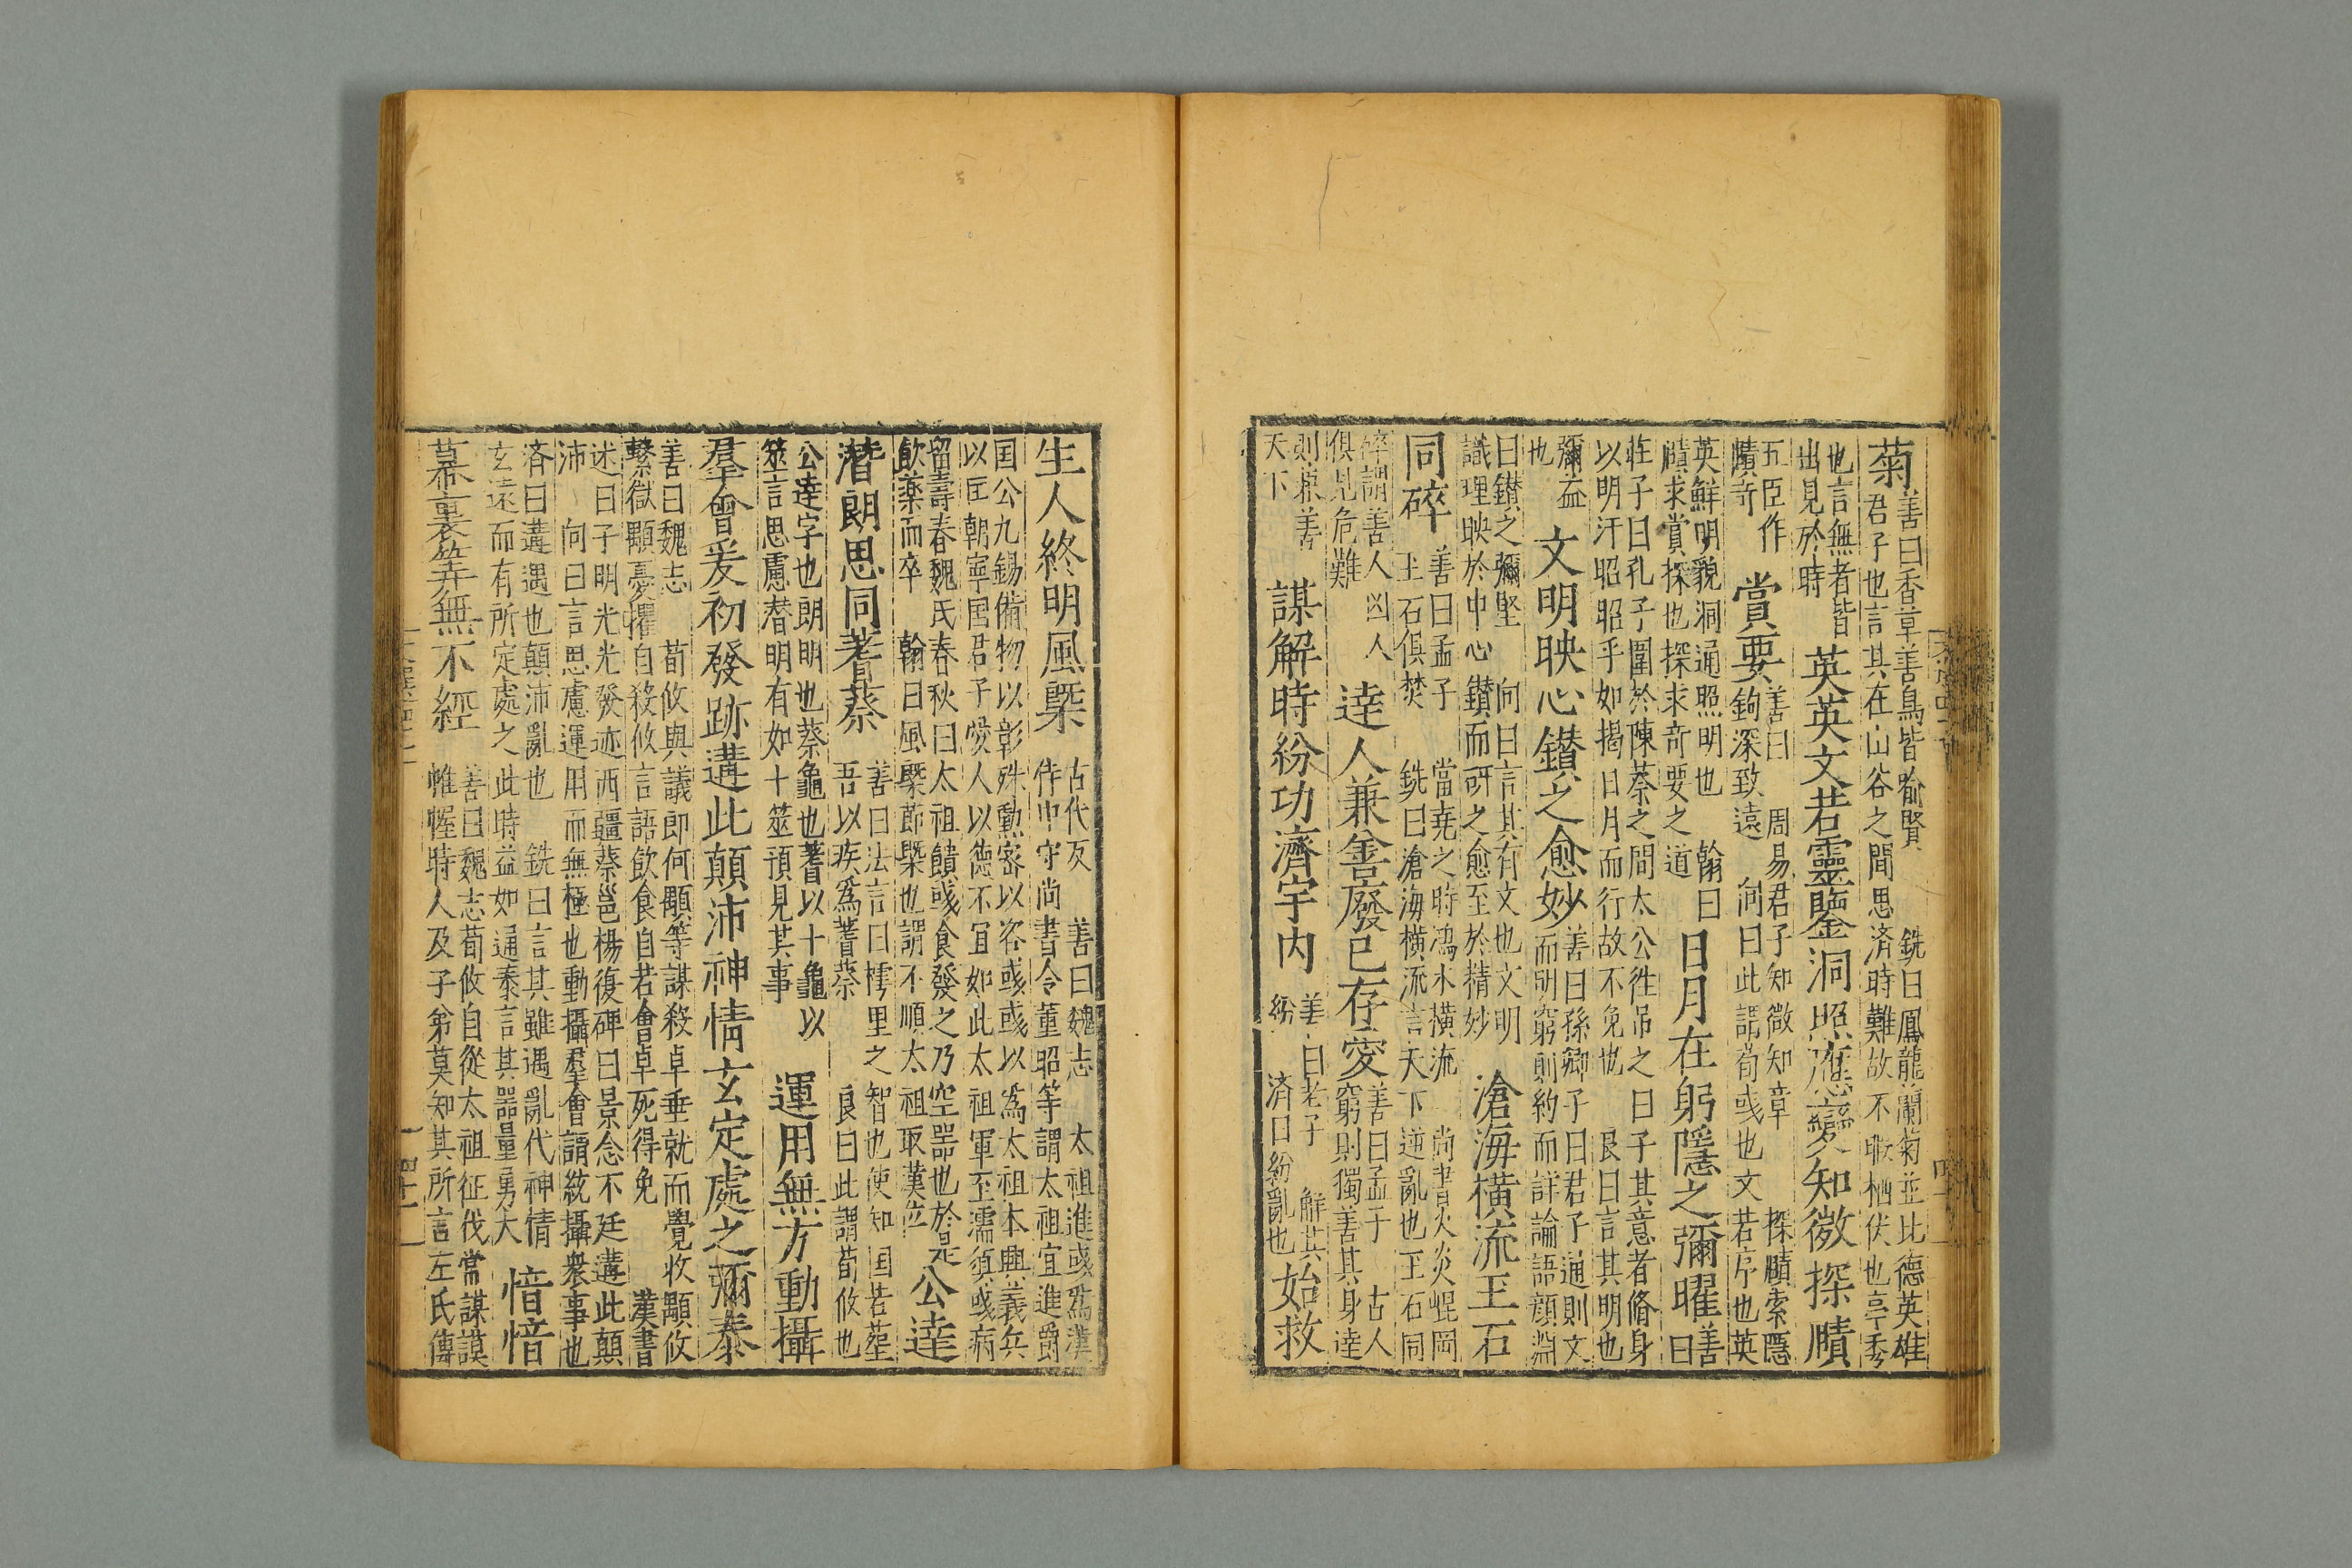 菊善曰香草善鳥皆喻賢　銑曰鳳龍蘭菊並比德英雄
君子也言其在山谷之間思済時難故不暇栖伏也亭秀
也言無者皆
出見於時
英英文若靈鑒洞照應變知微探賾
五臣作
賾奇
賞要善曰　周易君子知微知章　探賾索隱
鉤深致遠　向曰此謂荀彧也文若序也英
英鮮明貌洞通照明也
賾求賞探也探求奇要之道
翰曰
日月在躬隱之彌曜善
曰
莊子曰孔子圍於陳蔡之間太公徃吊之曰子其意者脩身
以明汙昭昭乎如揭日月而行故不免也　良曰言其明也
彌益
也
文明映心鑚之愈妙善曰孫卿子曰君子通則文
而明窮則約而詳論語顔淵
曰鑚之彌堅　向曰言其有文也文明
識理映於中心鑚而研之愈至於精妙
滄海橫流玉石
同碎善曰孟子　當堯之時鴻水橫流　尚書火炎崐岡
玉石俱焚　銑曰滄海橫流言天下逆亂也玉石同
碎謂善人凶人
俱見危難
達人兼善廢已存愛善曰孟子　古人
窮則獨善其身達
則兼善
天下
謀解時紛功濟宇内善曰老子　解其
紛　済曰紛亂也
始救
生人終明風槩古代反　善曰魏志　太祖進彧爲漢
侍中守尚書令董昭等謂太祖宜進爵
国公九錫備物以彰殊勳密以咨彧彧以爲太祖本興義兵
以匡朝寧国君子愛人以德不宜如此太祖軍至濡須彧病
留壽春魏氏春秋曰太祖饋彧食發之乃空器也於是
飲藥而卒　翰曰風槩節槩也謂不順太祖取漢位
公逹
潛朗思同蓍蔡善曰法言曰樗里之智也使知国若葬
吾以疾爲蓍蔡　良曰此謂荀攸也
公逹字也朗明也蔡龜也蓍以十龜以
筮言思慮潜明有如十筮預見其事
運用無方動攝
羣會爰初發跡遘此顛沛神情玄定處之彌泰
善曰魏志　荀攸與議郎何顒等謀殺卓垂就而覺收顒攸
繫獄顒憂懼自殺攸言語飲食自若會卓死得免　漢書
述曰子明光光發迹西疆蔡邕楊復碑曰景念不延遘此顛
沛　向曰言思慮運用而無極也動攝羣會謂統攝衆事也
済曰遘遇也顛沛亂也　銑曰言其雖遇亂代神情
玄遠而有所定處之此時益如通泰言其器量勇大
愔愔
幕裏筭無不經善曰魏志荀攸自從太祖征伐常謀謨
帷幄時人及子弟莫知其所言左氏傳